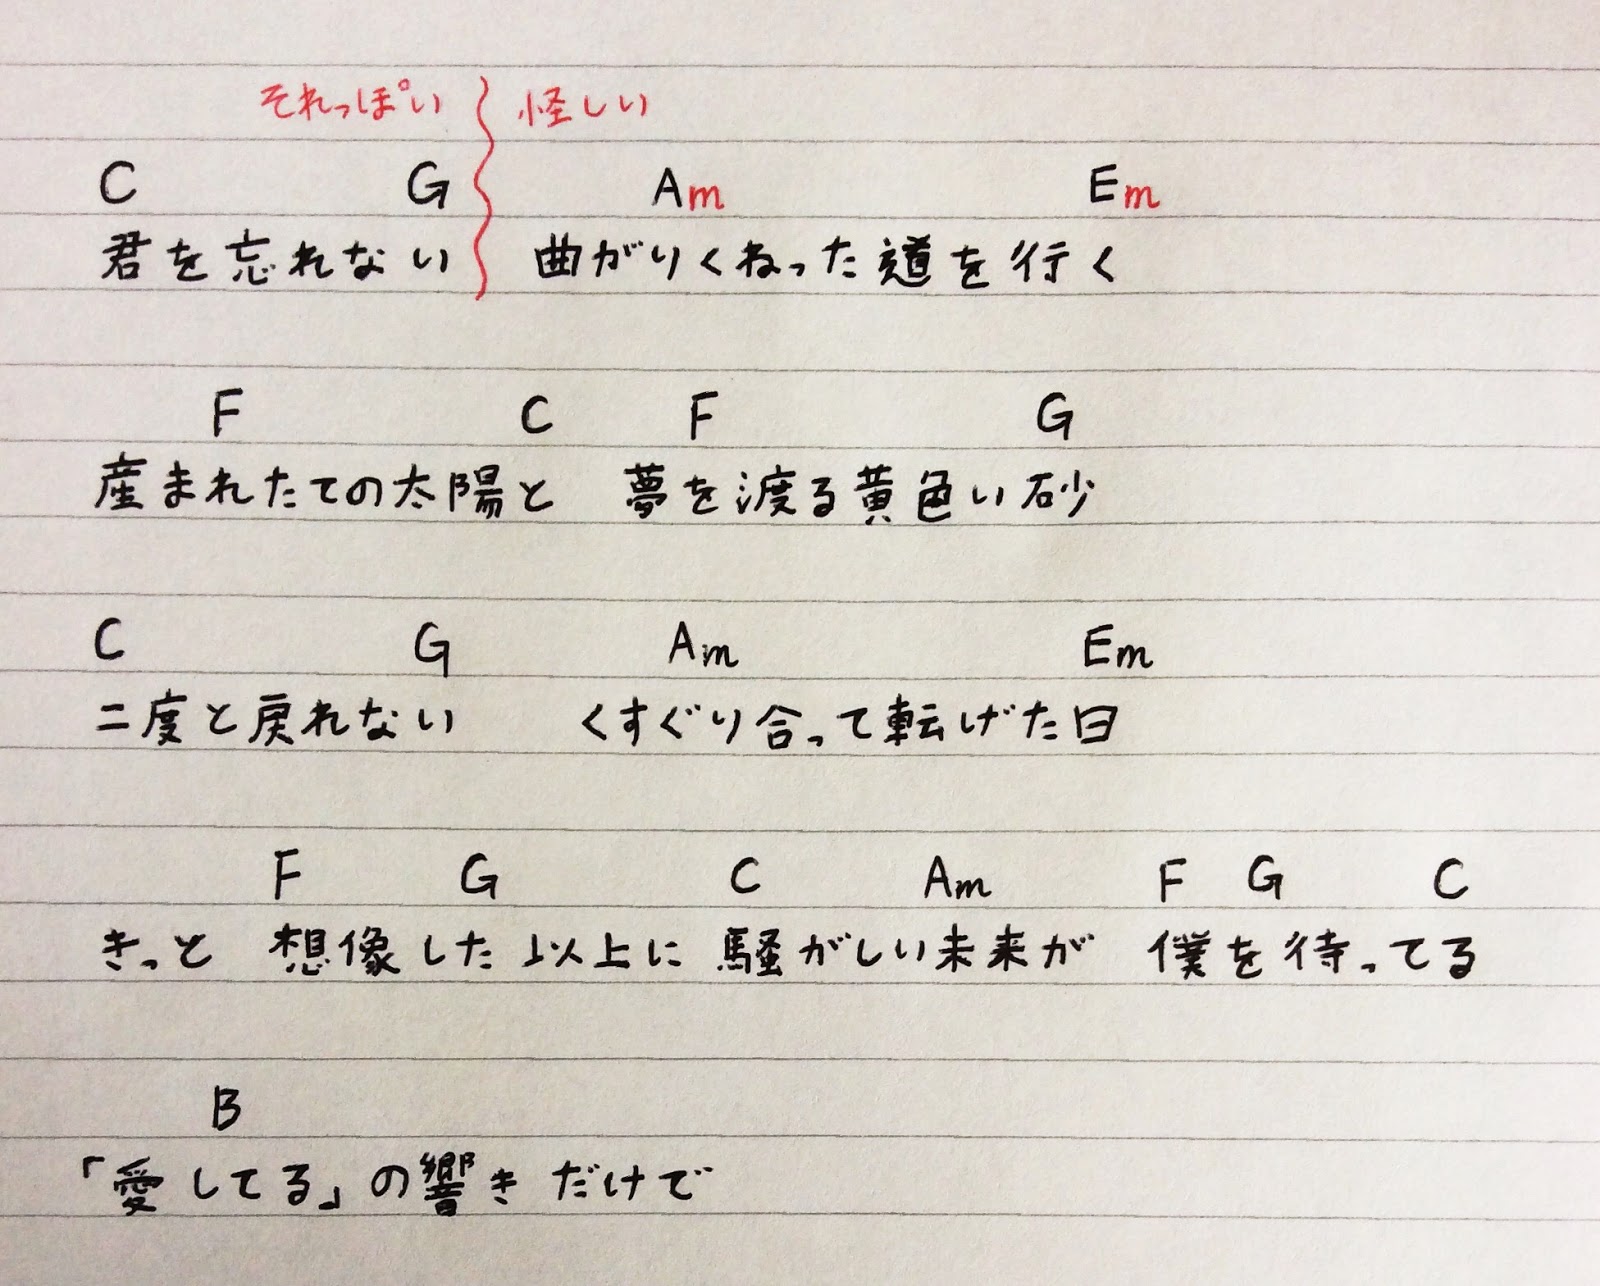 それっぽい 怪しい
C G Am Em
君を忘れない 曲がりくねった道を行く
F C F G
産まれたての太陽と 夢を渡る黄色い砂
C G Am Em
二度と戻れない くすぐり合って転げた日
F G C Am F G C
きっと 想像した以上に 騒がしい未来が 僕を待ってる
B
「愛してる」の響きだけで